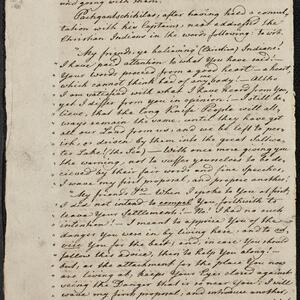 and going with them.
Pachgantschihilas, after having held a consul-
tation with his Captains, next addressed the
Christian Indians in the words following: to wit:
"My friends, ye believing (Christian) Indians!
I have paid attention to what you have said:—
Your words proceed from a good heart, a heart,
which cannot think bad of any body:— Altho'
I am satisfied with what I have heard from you,
yet I differ from you in opinion:— I still be-
lieve, that the Long Knife People will al-
ways remain the same, until they have got
all our Land from us; and we be left to pe-
rish, or driven by them into the great Saltwa-
ter Lake! (the Sea)— With once more giving you
the warning, not to suffer yourselves to be de-
ceived by their fair words and fine speeches,
I wave my first proposal, and propose another:
"My friends! When I spoke to You at first,
I did not intend to compel You forthwith to
leave Your Settlements!— No! I had no such
intention!— I meant to apprise You of the
danger you were in by living here, and to ad-
vise You for the best; and, in case You should
follow this advice, then to help You along!—
But, as the attachment for the place You now
are living at, keeps Your Eyes closed against
seeing the Danger that is so near You: I will
wave my first proposal, and introduce another,